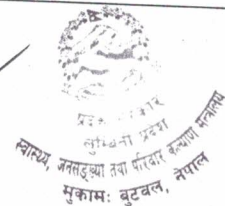 प्रदेश सरकार
लुम्बिनी प्रदेश
स्वास्थ्य, जनसङ्ख्या तथा परिवार कल्याण मन्त्रालय
मुकामः बुटवल, नेपाल